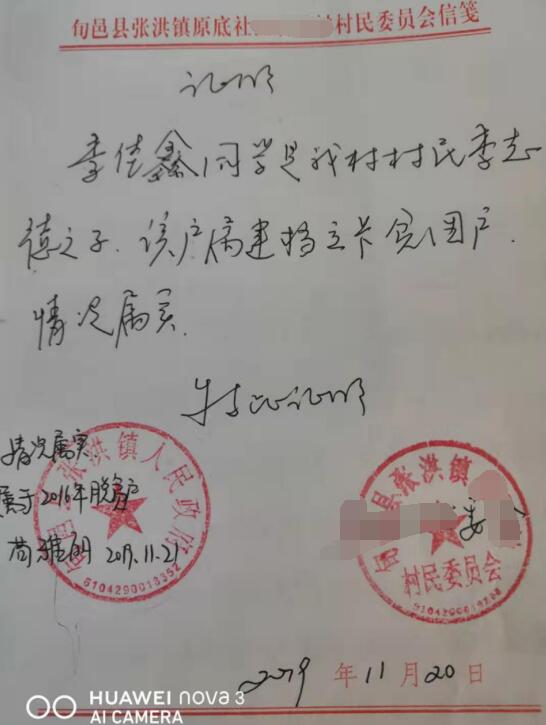 旬邑县张洪镇原底社村民委员会信笺
证明
李佳鑫同学是我村村民李志
德之子、该户属建档立卡贫困户.
情况属实.
特此证明
情况属实
属于2016年脱贫户
2019.11.21
旬邑县张洪镇人民政府
6104290018352
旬邑县张洪镇
委
村民委员会
2019年11月20日
HUAWEI nova 3
AI CAMERA